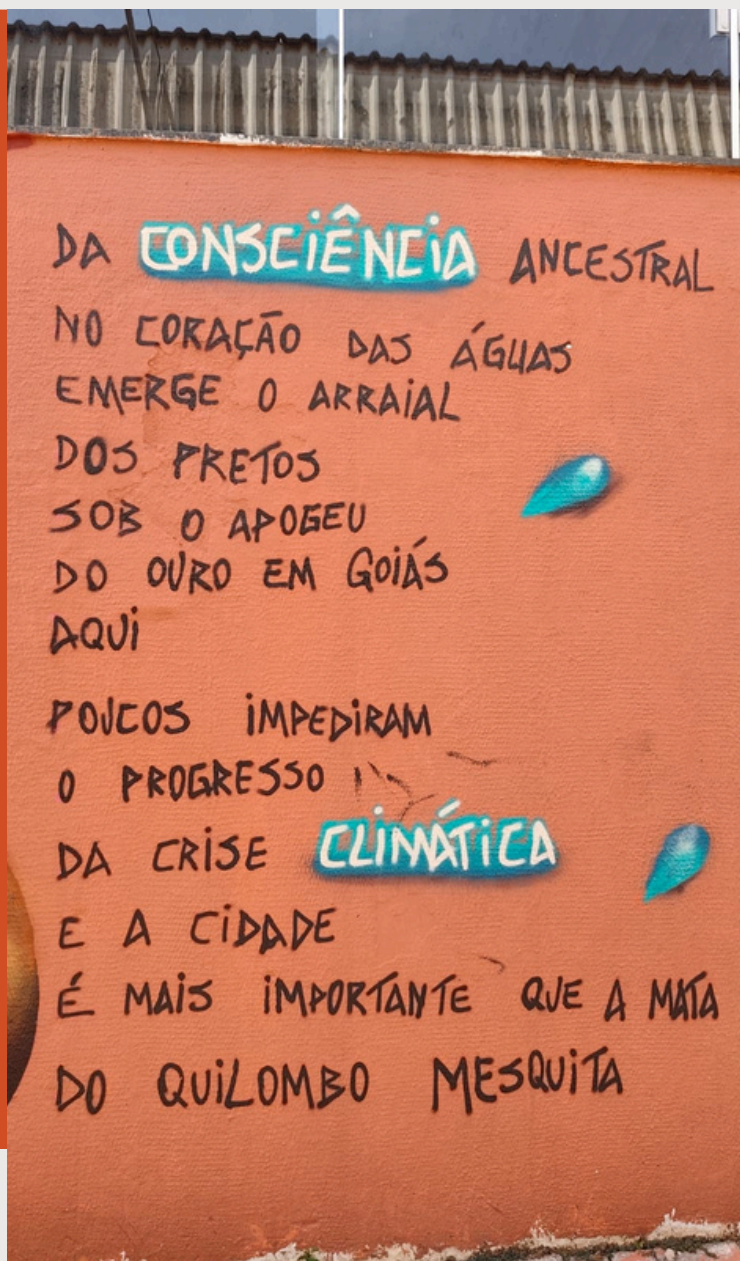 DA CONSCIÊNCIA ANCESTRAL
NO CORAÇÃO DAS ÁGUAS
EMERGE O ARRAIAL
DOS PRETOS
SOB O APOGEU
DO OURO EM GOIÁS
AQUI
POUCOS IMPEDIRAM
O PROGRESSO
DA CRISE CLIMÁTICA
E A CIDADE
É MAIS IMPORTANTE QUE A MATA
DO QUILOMBO MESQUITA